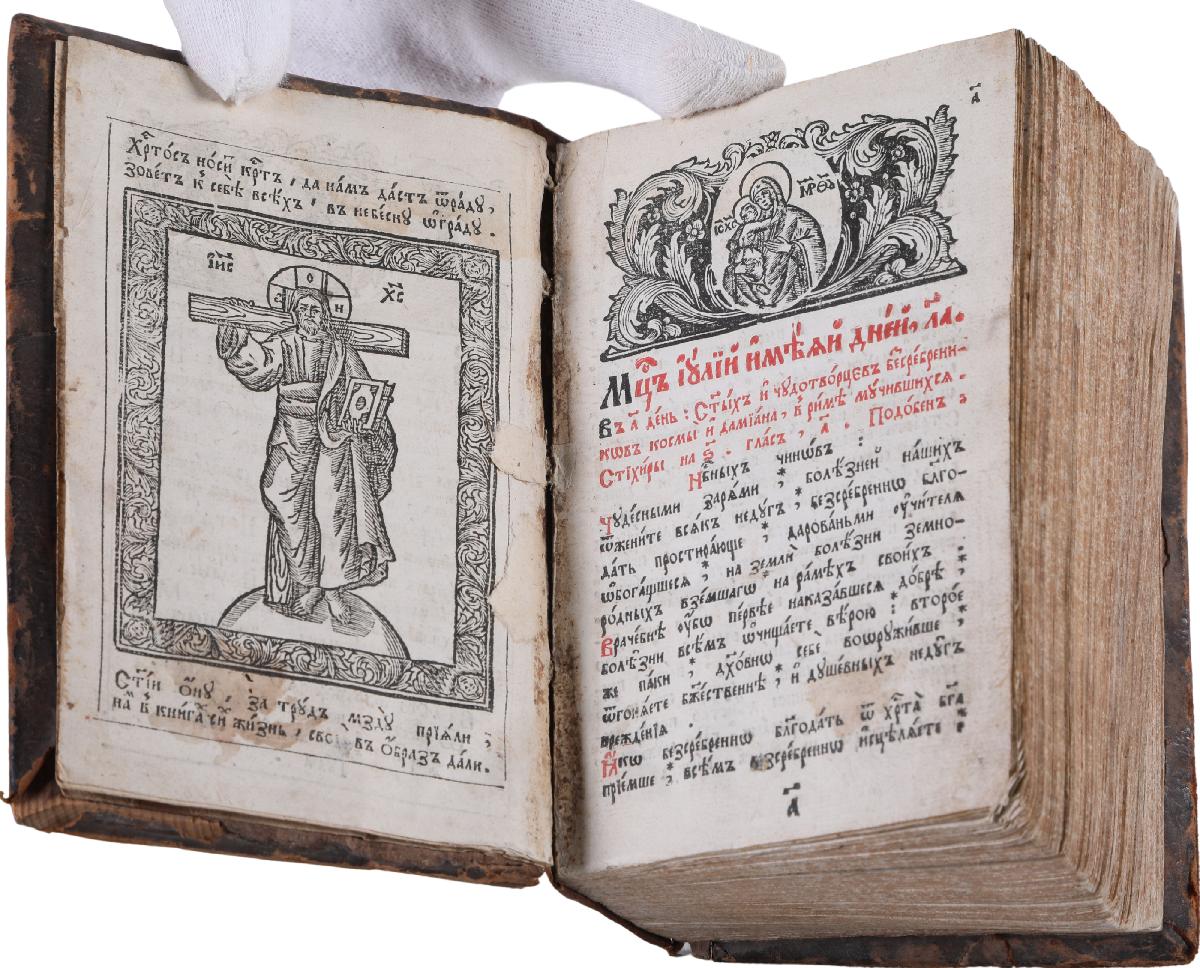 Хрⷭ҇то́съ но́ситъ крⷭ҇тъ, да на́мъ да́стъ ѿра́дꙋ,
зове́тъ к̾ себѣ̀ всѣ́хъ, въ небе́снꙋ ѡ҆гра́дꙋ.
І҆И҃С
Х҃С
Ѡ О Н
Ст҃і́и ѻ҆́нꙋ, за̀ трꙋ́дъ мздꙋ̀ прїѧ́ли,
на́мъ в̾ кни́гѣ се́й жи́знь, свою̀ въ ѻ҆́бразъ да́ли.
а҃
М҃Р Ѳ҃Ѹ
ІС ХС
Мцⷭ҇ъ і҆ꙋ́лїй и҆мѣ́ѧй дне́й, л҃а.
Въ а҃ де́нь: Ст҃ы́хъ и҆ чꙋдотво́рцєвъ безсре́брени-
кѡвъ космы̀ и҆ дамїа́на, в̾ ри́мѣ мꙋ́чившихсѧ.
Стїхи́ры на ѕ҃. гла́съ, а҃. Подо́бенъ:
Нбⷭ҇ныхъ чинѡ́въ:
Чꙋде́сными зарѧ́ми, * болѣ́зней на́шихъ
ѿжени́те всѧ́къ недꙋ́гъ, * безсре́бреннѡ бл҃го-
да́ть простира́юще, * дарова́ньми ᲂу҆чи́телѧ
ѡ҆богаⷳ҇щшесѧ, * на землѝ болѣ̑зни земно-
ро́дныхъ взе́мшагѡ * на ра́мѣхъ свои́хъ.
Враче́бнѣ ᲂу҆́бѡ пе́рвѣе наказа́вшесѧ до́брѣ, *
болѣ̑зни всѣ́мъ ѡ҆чища́ете вѣ́рою: второ́е
же па́ки, * дꙋхо́внѡ себѐ воѡрꙋжи́вше, *
ѿгонѧ́ете бжⷭ҇е́ственнѣ, * и҆ дꙋше́вныхъ недꙋ́гъ
врежде́нїѧ.
Ꙗ҆́кѡ безсре́бреннѡ блгⷣать ѿ хрⷭ҇та̀ бг҃а
прїе́мше, * всѣ́мъ безсре́бреннѡ и҆сцѣлѧ́ете *
а҃